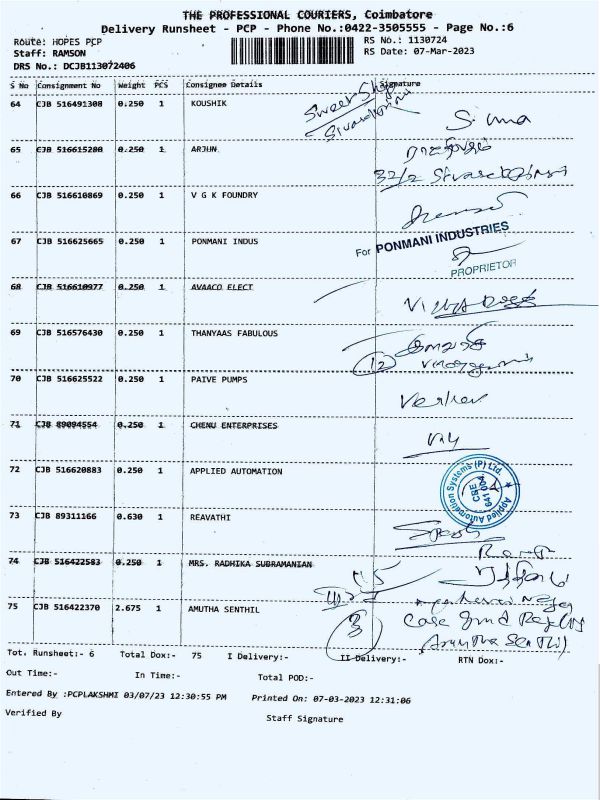 THE PROFESSIONAL COURIERS, Coimbatore
Delivery Runsheet - PCP - Phone No.:0422-3505555 - Page No.:6
Route: HOPES PCP
RS No.: 1130724
Staff: RAMSON
RS Date: 07-Mar-2023
DRS No.: DCJB113072406
S No Consignment No Weight PCS Consignee Details Signature
64 CJB 516491308 0.250 1 KOUSHIK
Sweet Shop
65 CJB 516615280 0.250 1 ARJUN.
32/2
66 CJB 516610869 0.250 1 V G K FOUNDRY
67 CJB 516625665 0.250 1 PONMANI INDUS
For PONMANI INDUSTRIES
PROPRIETOR
68 CJB 516610977 0.250 1 AVAACO ELECT
69 CJB 516576430 0.250 1 THANYAAS FABULOUS
12
70 CJB 516625522 0.250 1 PAIVE PUMPS
71 CJB 89094554 0.250 1 CHENU ENTERPRISES
72 CJB 516620883 0.250 1 APPLIED AUTOMATION
Applied Automation Systems (P) Ltd.
CBE
641 004
73 CJB 89311166 0.630 1 REAVATHI
74 CJB 516422583 0.250 1 MRS. RADHIKA SUBRAMANIAN
75 CJB 516422370 2.675 1 AMUTHA SENTHIL
3
(Amutha Senthil)
Tot. Runsheet:- 6 Total Dox:- 75 I Delivery:- II Delivery:- RTN Dox:-
Out Time:- In Time:- Total POD:-
Entered By :PCPLAKSHMI 03/07/23 12:30:55 PM Printed On: 07-03-2023 12:31:06
Verified By
Staff Signature